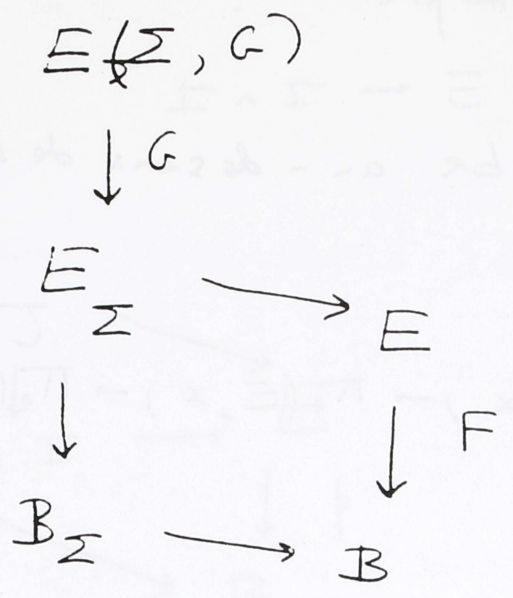 E(Σ, G)
G
E_Σ
E
F
B_Σ
B